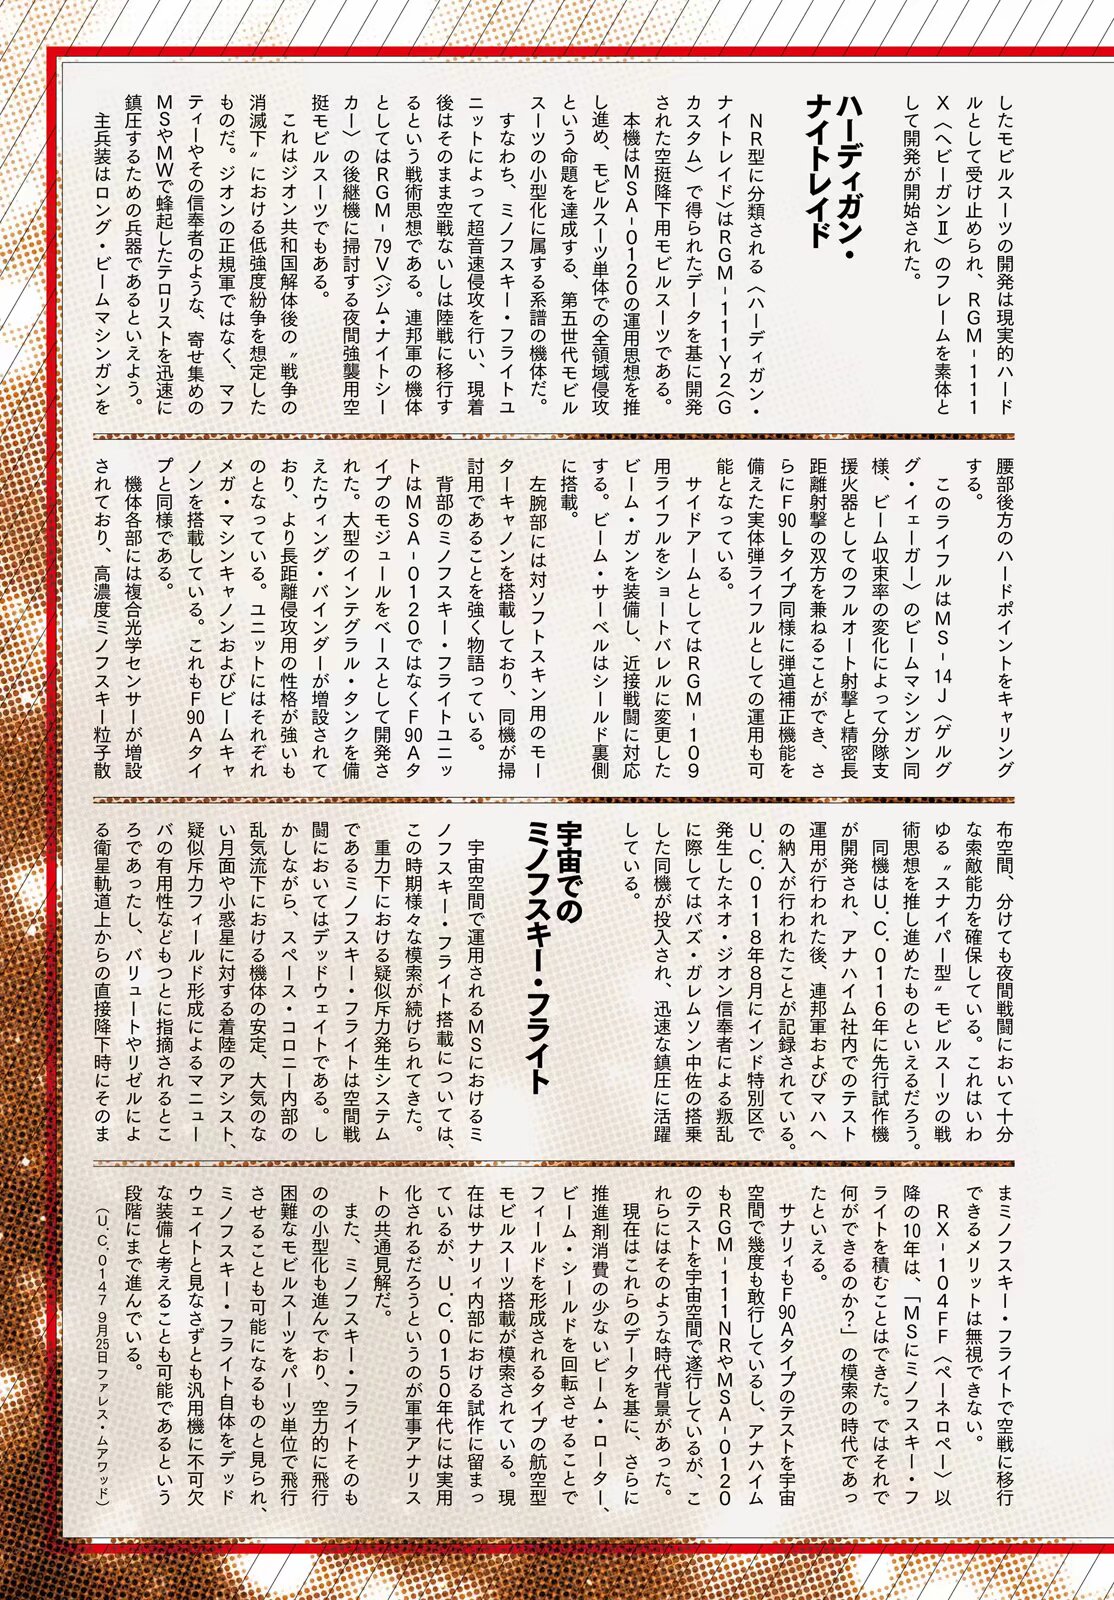 したモビルスーツの開発は現実的ハード
ルとして受け止められ、RGM-111
X〈ヘビーガンⅡ〉のフレームを素体と
して開発が開始された。
ハーディガン・
ナイトレイド
NR型に分類される〈ハーディガン・
ナイトレイド〉はRGM-111Y2〈G
カスタム〉で得られたデータを基に開発
された空挺降下用モビルスーツである。
本機はMSA-0120の運用思想を推
し進め、モビルスーツ単体での全領域侵攻
という命題を達成する、第五世代モビル
スーツの小型化に属する系譜の機体だ。
すなわち、ミノフスキー・フライトユ
ニットによって超音速侵攻を行い、現着
後はそのまま空戦ないしは陸戦に移行す
るという戦術思想である。連邦軍の機体
としてはRGM-79V〈ジム・ナイトシー
カー〉の後継機に掃討する夜間強襲用空
挺モビルスーツでもある。
これはジオン共和国解体後の〝戦争の
消滅下〟における低強度紛争を想定した
ものだ。ジオンの正規軍ではなく、マフ
ティーやその信奉者のような、寄せ集めの
MSやMWで蜂起したテロリストを迅速に
鎮圧するための兵器であるといえよう。
主兵装はロング・ビームマシンガンを
腰部後方のハードポイントをキャリング
する。
このライフルはMS-14J〈ゲルグ
グ・イェーガー〉のビームマシンガン同
様、ビーム収束率の変化によって分隊支
援火器としてのフルオート射撃と精密長
距離射撃の双方を兼ねることができ、さ
らにF90Lタイプ同様に弾道補正機能を
備えた実体弾ライフルとしての運用も可
能となっている。
サイドアームとしてはRGM-109
用ライフルをショートバレルに変更した
ビーム・ガンを装備し、近接戦闘に対応
する。ビーム・サーベルはシールド裏側
に搭載。
左腕部には対ソフトスキン用のモー
ターキャノンを搭載しており、同機が掃
討用であることを強く物語っている。
背部のミノフスキー・フライトユニッ
トはMSA-0120ではなくF90Aタ
イプのモジュールをベースとして開発さ
れた。大型のインテグラル・タンクを備
えたウィング・バインダーが増設されて
おり、より長距離侵攻用の性格が強いも
のとなっている。ユニットにはそれぞれ
メガ・マシンキャノンおよびビームキャ
ノンを搭載している。これもF90Aタイ
プと同様である。
機体各部には複合光学センサーが増設
されており、高濃度ミノフスキー粒子散
布空間、分けても夜間戦闘において十分
な索敵能力を確保している。これはいわ
ゆる〝スナイパー型〟モビルスーツの戦
術思想を推し進めたものといえるだろう。
同機はU.C.0116年に先行試作機
が開発され、アナハイム社内でのテスト
運用が行われた後、連邦軍およびマハへ
の納入が行われたことが記録されている。
U.C.0118年8月にインド特別区で
発生したネオ・ジオン信奉者による叛乱
に際してはバズ・ガレムソン中佐の搭乗
した同機が投入され、迅速な鎮圧に活躍
している。
宇宙での
ミノフスキー・フライト
宇宙空間で運用されるMSにおけるミ
ノフスキー・フライト搭載については、
この時期様々な模索が続けられてきた。
重力下における疑似斥力発生システム
であるミノフスキー・フライトは空間戦
闘においてはデッドウェイトである。し
かしながら、スペース・コロニー内部の
乱気流下における機体の安定、大気のな
い月面や小惑星に対する着陸のアシスト、
疑似斥力フィールド形成によるマニュー
バの有用性などもつとに指摘されるとこ
ろであったし、バリュートやリゼルによ
る衛星軌道上からの直接降下時にそのま
まミノフスキー・フライトで空戦に移行
できるメリットは無視できない。
RX-104FF〈ペーネロペー〉以
降の10年は、「MSにミノフスキー・フ
ライトを積むことはできた。ではそれで
何ができるのか?」の模索の時代であっ
たといえる。
サナリィもF90Aタイプのテストを宇宙
空間で幾度も敢行しているし、アナハイム
もRGM-111NRやMSA-0120
のテストを宇宙空間で遂行しているが、こ
れらにはそのような時代背景があった。
現在はこれらのデータを基に、さらに
推進剤消費の少ないビーム・ローター、
ビーム・シールドを回転させることで
フィールドを形成されるタイプの航空型
モビルスーツ搭載が模索されている。現
在はサナリィ内部における試作に留まっ
ているが、U.C.0150年代には実用
化されるだろうというのが軍事アナリス
トの共通見解だ。
また、ミノフスキー・フライトそのも
のの小型化も進んでおり、空力的に飛行
困難なモビルスーツをパーツ単位で飛行
させることも可能になるものと見られ、
ミノフスキー・フライト自体をデッド
ウェイトと見なさずとも汎用機に不可欠
な装備と考えることも可能であるという
段階にまで進んでいる。
(U.C.0147 9月25日 ファレス・ムアワッド)